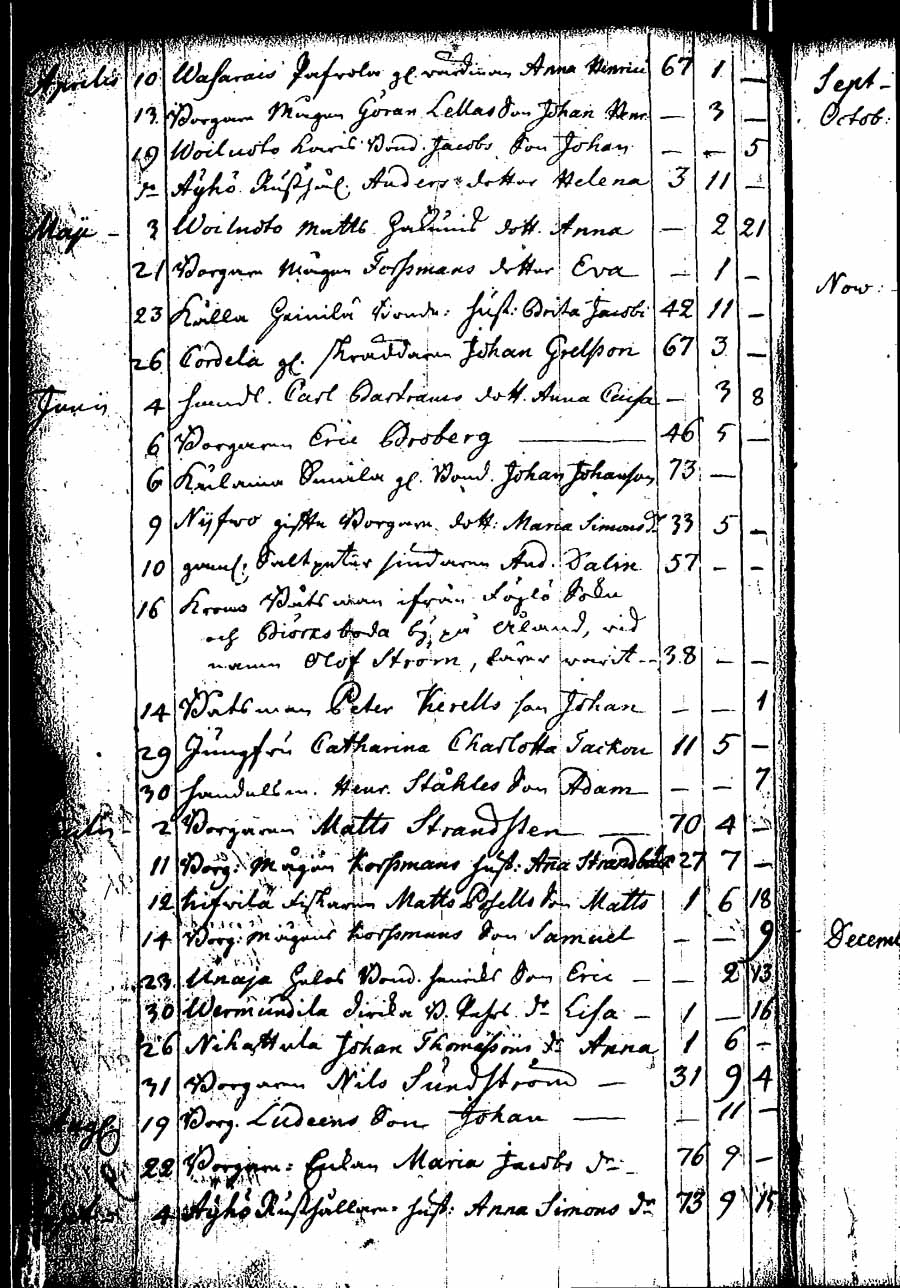 Aprilis 10 Wasarais gl. Anna Henrici 67 1 —
13 Borgare Mågan Göran Lellas Son Johan Henr — 3 —
19 Woiluoto Bond. Jacobs Son Johan — — 5
dn Äyhö Rusthål. Anders dotter Helena 3 11 —
Maji – 3 Woiluoto Matts dott. Anna — 2 21
21 Borgare Mågan Forssmans dotter Eva — 1 —
23 Källa Bonde: hust: Brita Jacobi 42 11 —
26 Cordela gl. skraddaren Johan Grelsson 67 3 —
Junii 4 handl. Carl Bartrams dott. Anna Caisa — 3 8
6 Borgaren Eric Broberg — 46 5 —
6 gl. Bond. Johan Johansson 73 —
9 Nijstwo giftta Borgare dott: Maria Simons dr 33 5 —
10 gaml: Saltpetter siudaren And. Dalin 57 — —
16 Krono Båtsman ifrån Föglö Sokn
och Biörcksboda bÿ på Åland, vid
namn Olof Ström, warit — 38 — —
14 Båtsman Peter Kerells son Johan — — 1
29 Jungfru Catharina Charlotta Tackou 11 5 —
30 handelsm. Henr. Ståhles Son Adam — — 7
2 Borgaren Matts Strandsten — 70 4 —
11 Borg: Mågan Korssmans hust: Ana 27 7 —
12 Fiskaren Matts Son Matts 1 6 18
14 Borg: Mågans Korssmans Son Samuel — — 9
23 Unaja Bond. henricks Son Eric — — 2 13
30 Wermundila dr Lisa — 1 — 16
26 Nihattula Johan Thomassons dr Anna 1 6 —
31 Borgaren Nils Sundström — 31 9 4
Aug 19 Borg. Ludeens Son Johan — — 11 —
22 Borgare: Enkan Maria Jacobs dr — 76 9 —
4 Äyhö Rusthållare hust: Anna Simons dr 73 9 15
Sept –
Octob:
Nov: –
Decemb